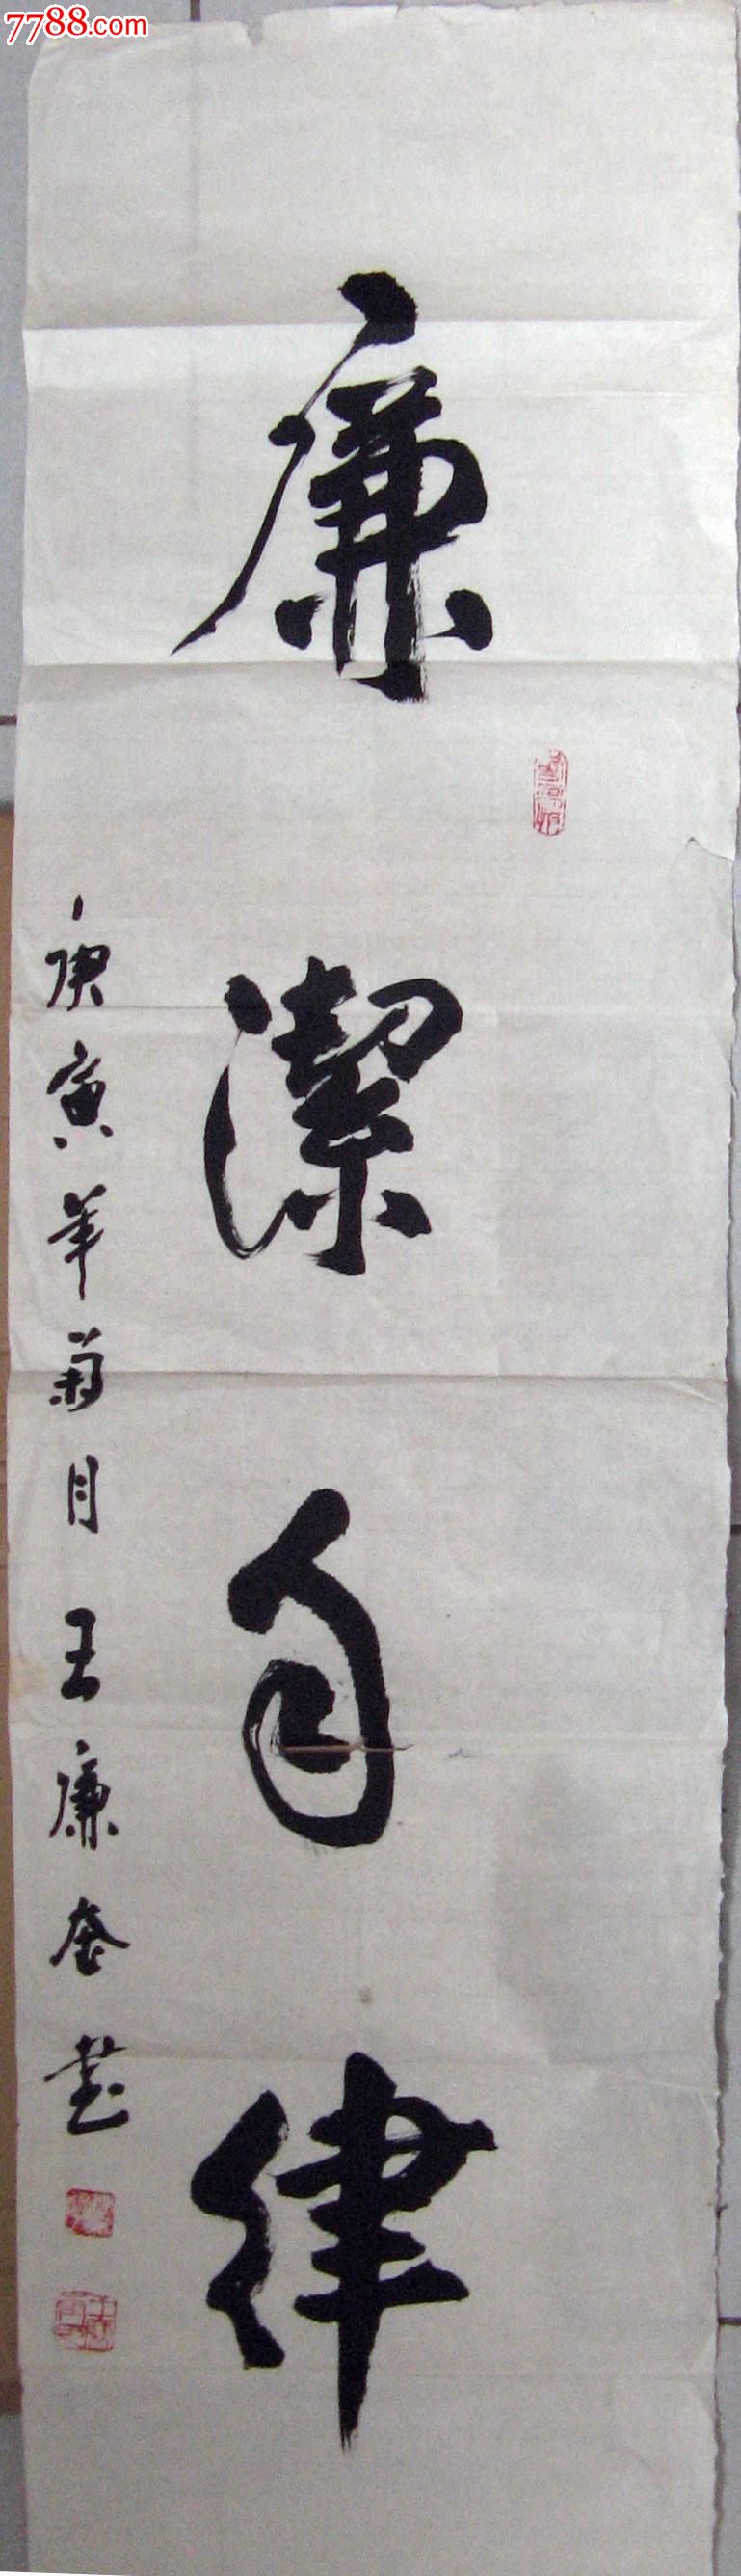 7788.com
廉潔自律
庚寅年菊月王廉書